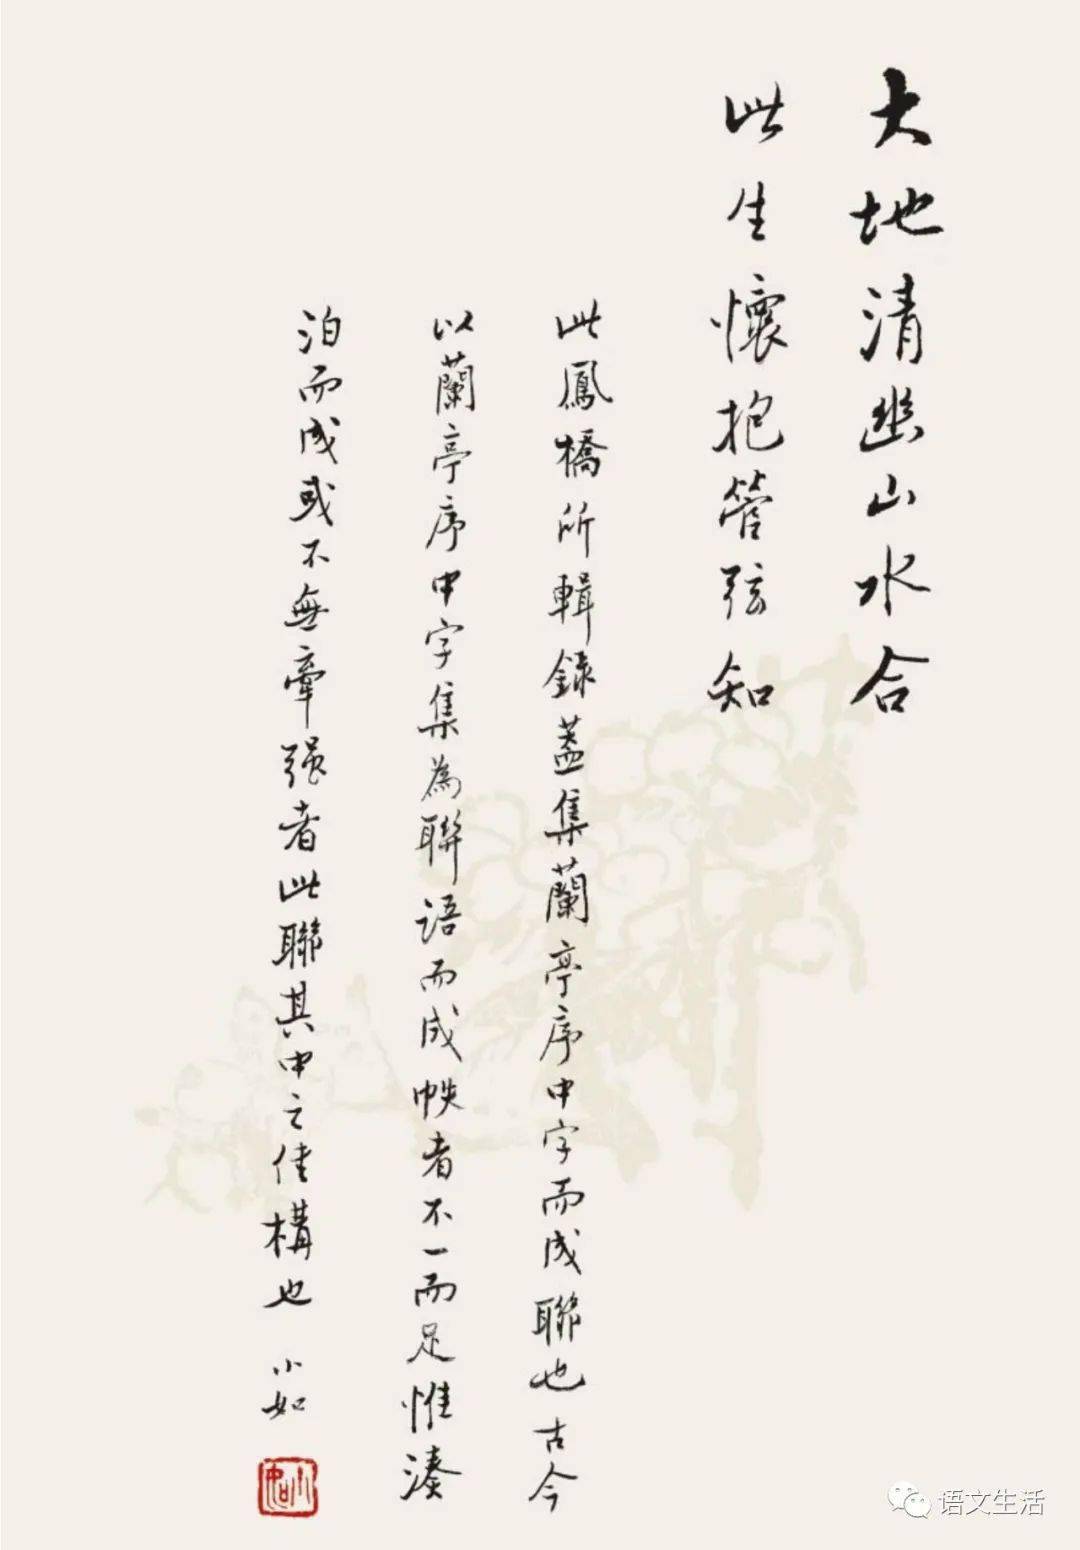 大地清幽山水合
此生懷抱管弦知
此鳳橋所輯錄蓋集蘭亭序中字而成聯也古今
以蘭亭序中字集為聯語而成帙者不一而足惟湊
泊而成或不無牽强者此聯其中之佳構也 小如
语文生活